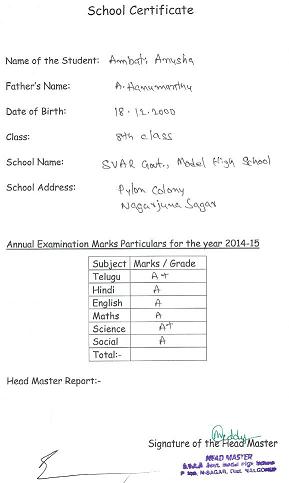 School Certificate
Name of the Student: Ambati Anusha
Father's Name: A. Hanumanthu
Date of Birth: 18.12.2000
Class: 8th class
School Name: SVAR Govt., Model High School
School Address: Pylon Colony
Nagarjuna Sagar
Annual Examination Marks Particulars for the year 2014-15
Subject Marks / Grade
Telugu A+
Hindi A
English A
Maths A
Science A+
Social A
Total:-
Head Master Report:-
Signature of the Head Master
HEAD MASTER
Govt. Model High
N-SAGAR, Dist.